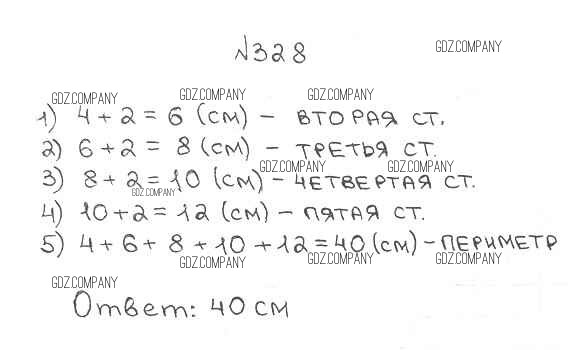 №328
GDZ.COMPANY
GDZ.COMPANY GDZ.COMPANY GDZ.COMPANY
1) 4+2=6 (см) – ВТОРАЯ СТ.
2) 6+2= 8 (см) – ТРЕТЬЯ СТ.
GDZ.COMPANY GDZ.COMPANY
3) 8+2=10 (см) – ЧЕТВЕРТАЯ СТ.
GDZ.COMPANY
4) 10+2=12 (см) – ПЯТАЯ СТ.
5) 4+6+8+10+12=40 (см) – ПЕРИМЕТР
GDZ.COMPANY GDZ.COMPANY GDZ.COMPANY
GDZ.COMPANY
Ответ: 40 см